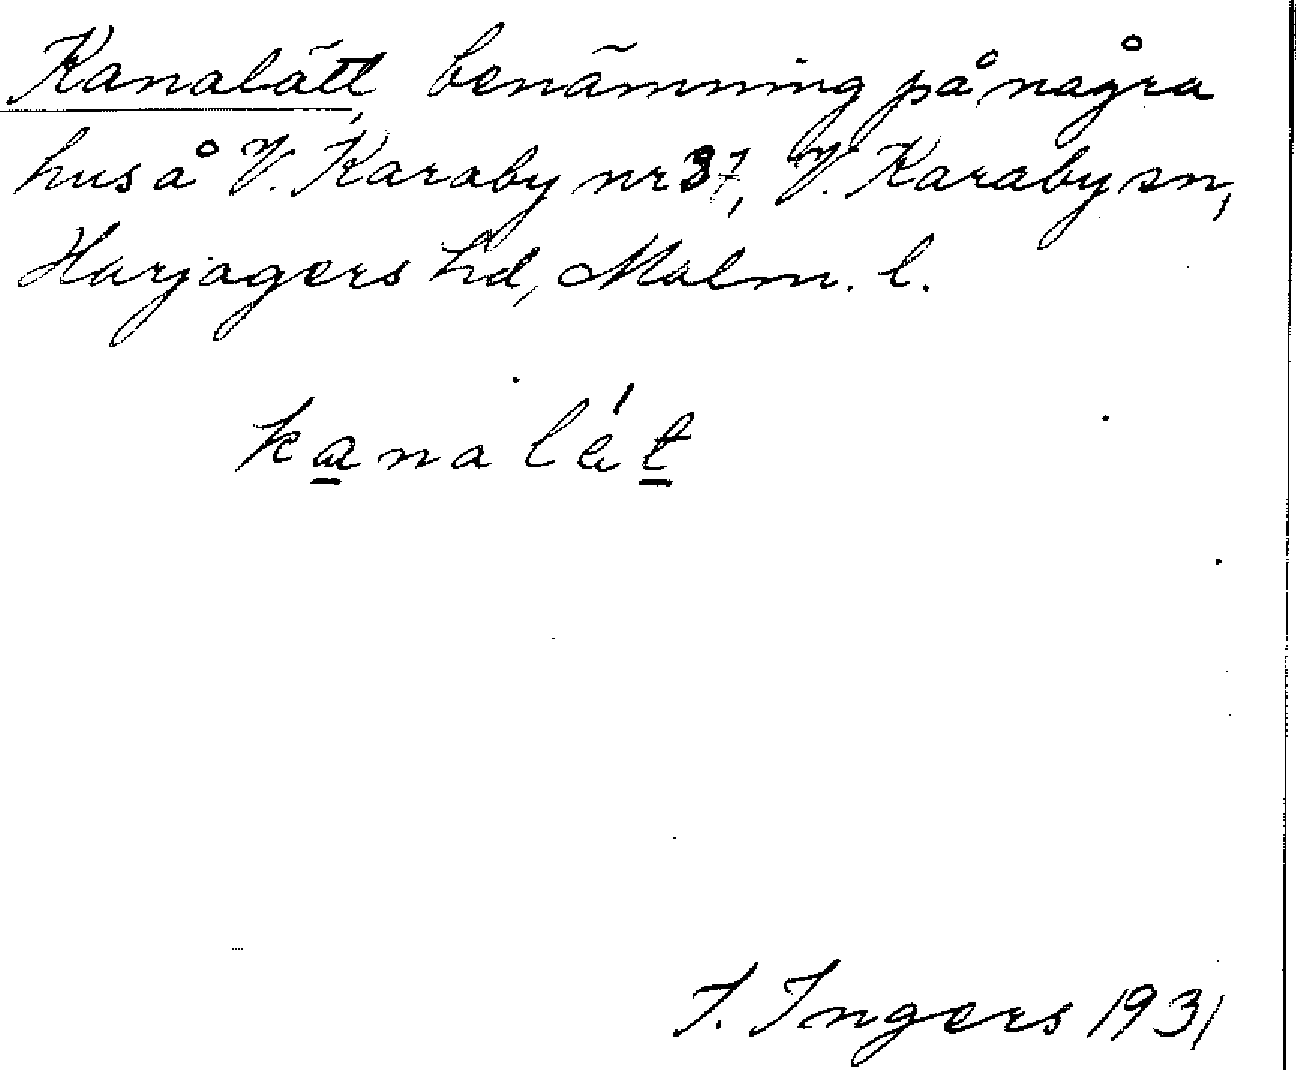 Kanalätt, benämning på några
hus å V. Karaby nr 37, V. Karaby sn,
Harjagers hd, Malm. l.
kanalät
I. Ingers 1931